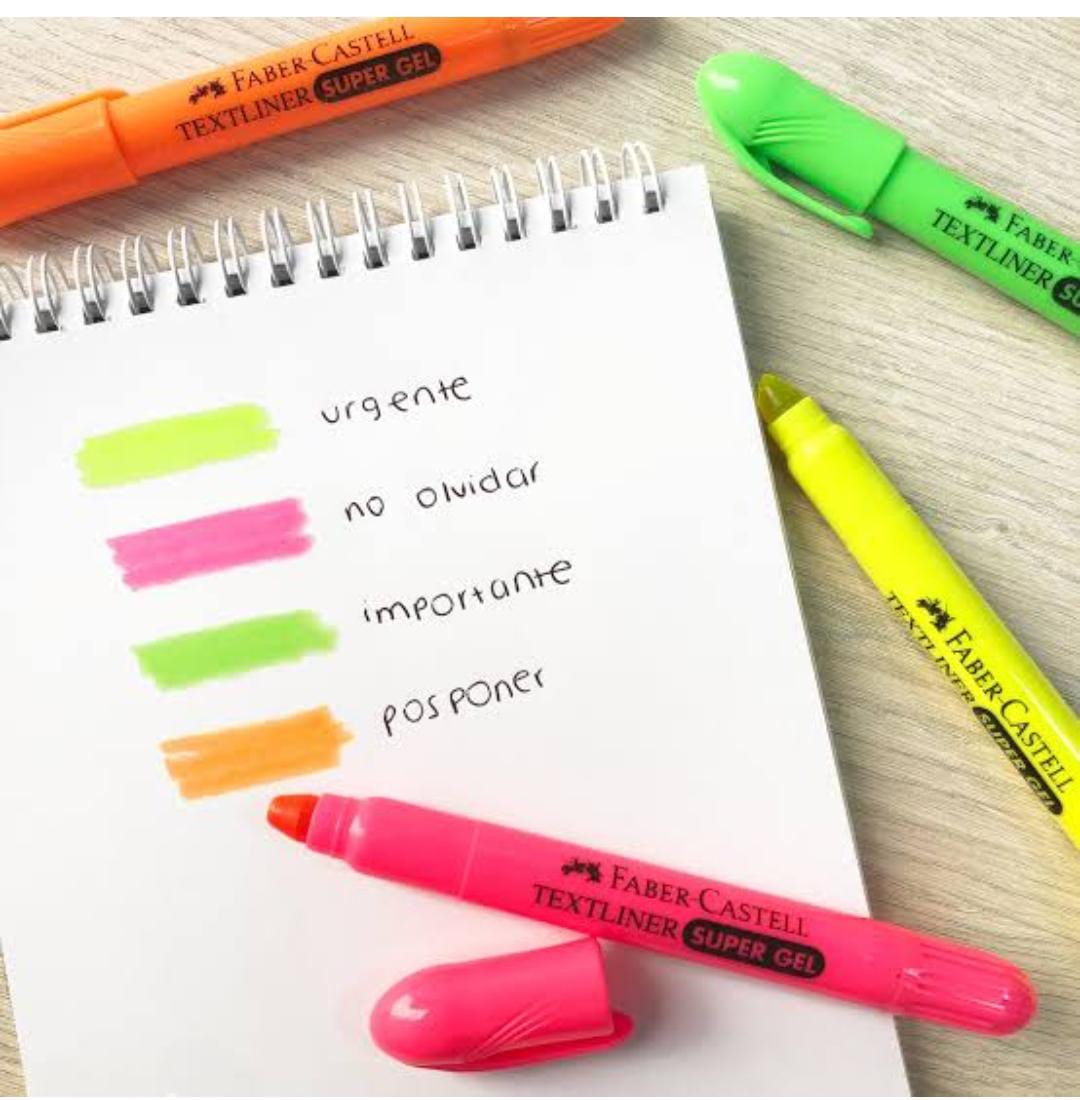 FABER-CASTELL
TEXTLINER SUPER GEL
FABER-
TEXTLINER SU
urgente
no olvidar
importante
posponer
FABER-CASTELL
TEXTLINER SUPER GEL
FABER-CASTELL
TEXTLINER SUPER GEL